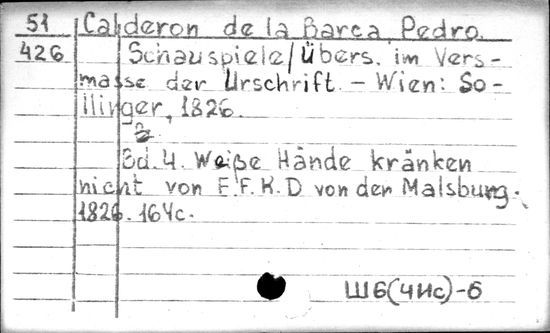 51 Calderon de la Barca, Pedro.
426 Schauspiele / Übers. im Vers-
masse der Urschrift. - Wien: So-
llinger, 1826.
Bd. 4. Weiße Hände kränken
nicht von E.F.K.D von der Malsburg.
1826. 164c.
Ш6(4Ис)-6